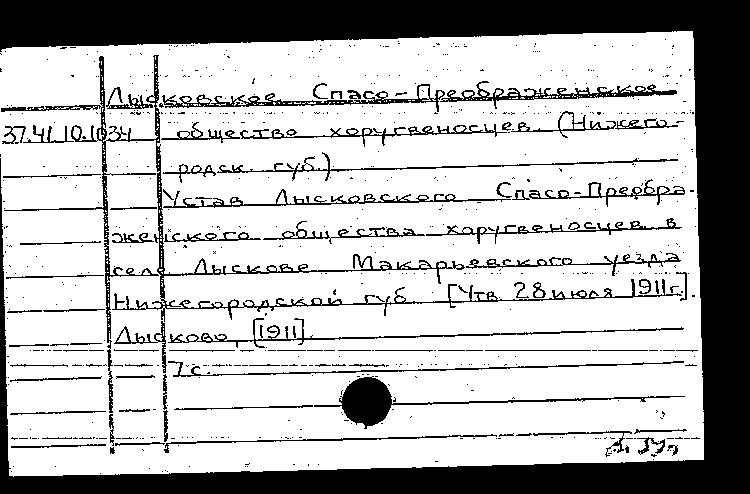 Лысковское Спасо-Преображенское
37.41.10.1034 общество хоругвеносцев. (Нижего-
родск. губ.)
Устав Лысковского Спасо-Преобра-
женского общества хоругвеносцев в
селе Лыскове Макарьевского уезда
Нижегородской губ. [Утв. 28 июля 1911 г.].
Лысково, [1911].
7 с.